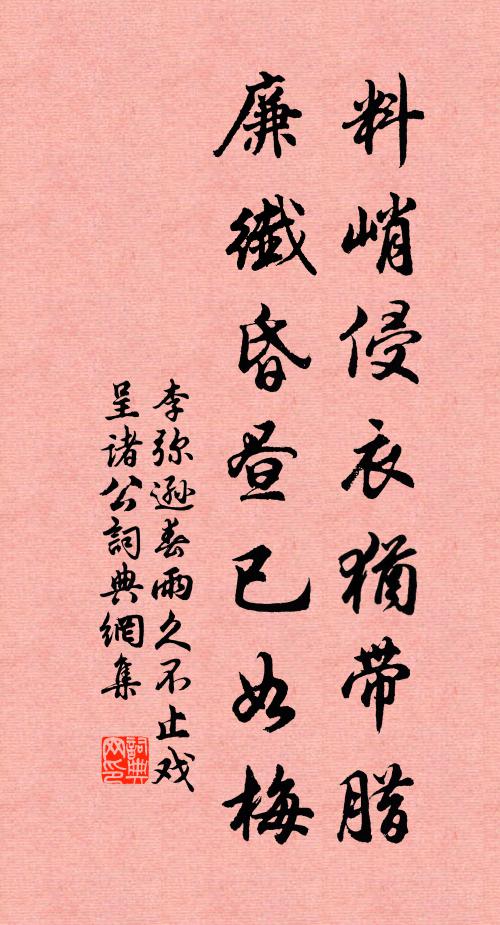 料峭侵衣犹带腊
廉纖昏昼已如梅
李弥遜春雨久不止戏
呈诸公詞典網集
詞典网印